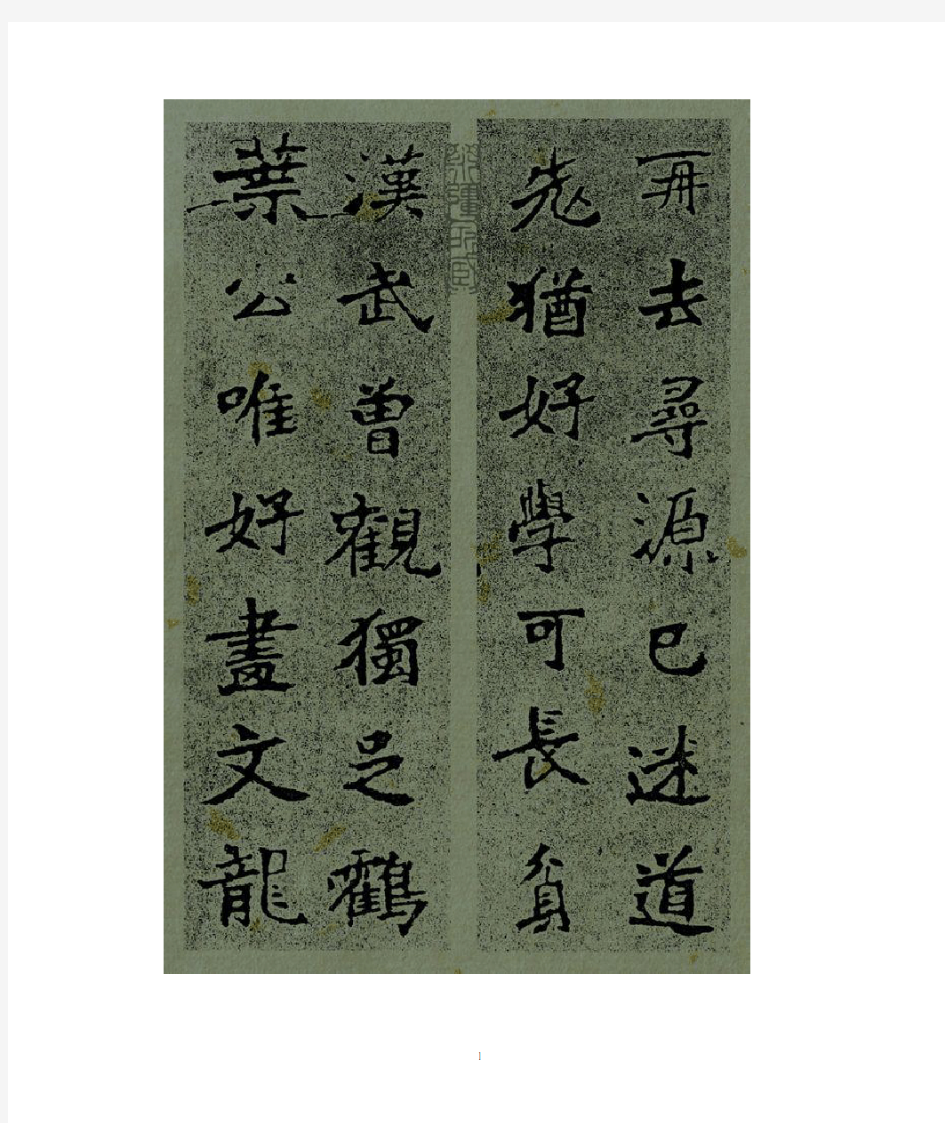 再去尋源已迷道
老猶好學可長貧
漢武曾觀獨足鶴
葉公唯好畫文龍
1